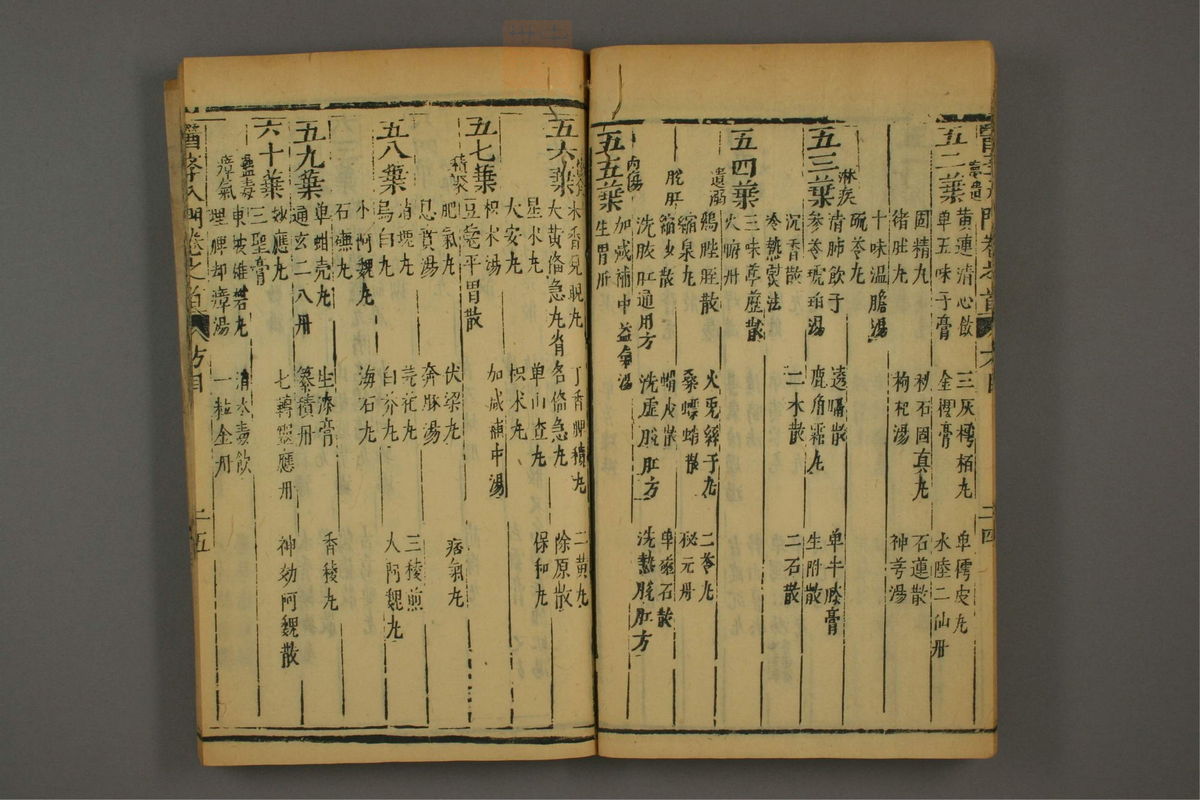 五二葉
黃連清心飲 三灰樗栢丸 单樗皮丸
单五味子膏 金櫻膏 水陸二仙丹
固精丸 秘石固真丸 石蓮散
猪肚丸 枸杞湯 神芎湯
十味温膽湯
淋疾
茯苓丸
五三葉
清肺飲子 透膈散 单牛膝膏
參苓琥珀湯 鹿角霜丸 生附散
沉香散 二木散 二石散
冷熱熨法
五四葉
三味葶藶散
火腑丹
遺溺
鷄䏶胵散 火兎絲子丸 二苓丸
縮泉丸 桑螵蛸散 秘元丹
脫肛
縮砂散 蝟皮散 单磁石散
洗脫肛通用方 洗虚脫肛方 洗熱脫肛方
內傷
加减補中益氣湯
五五葉
生胃丹
木香見睍丸 丁香脾積丸 二黃丸
五六葉
大黃備急丸 各備急丸 除原散
星术丸 单山查丸 保和丸
大安丸 枳术丸
枳术湯 加减補中湯
五七葉
豆蔻平胃散
積聚
肥氣丸 伏梁丸 痞氣丸
息賁湯 奔豚湯
消塊丸 三稜煎
五八葉
烏白丸 白芥丸 大阿魏丸
小阿魏丸 海石丸
石礆丸
单蚶壳丸 生漆膏 香稜丸
五九葉
通玄二八丹
妙應丸 七轉靈應丹 神効阿魏散
六十葉
三聖膏
蠱毒
東坡雄礬丸 消水毒飲
瘴氣
理脾却瘴湯 一粒金丹
醫學入門卷之首 方目 二五